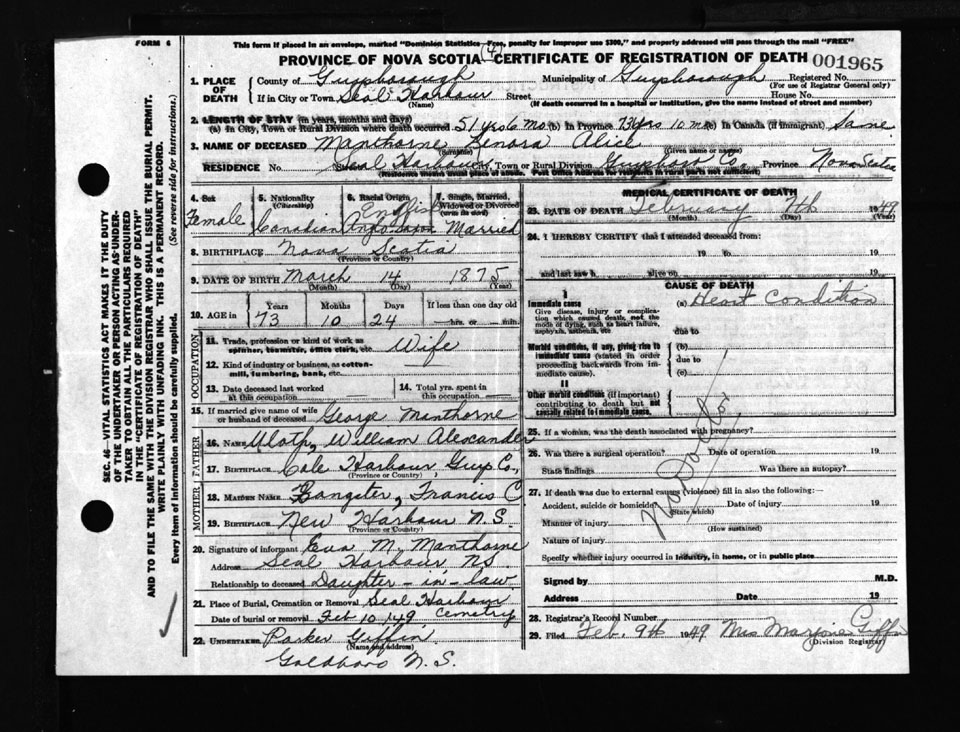 FORM 6
This form if placed in an envelope, marked "Dominion Statistics—Free, penalty for improper use $300," and properly addressed will pass through the mail "FREE"
PROVINCE OF NOVA SCOTIA (4) CERTIFICATE OF REGISTRATION OF DEATH 001965
1. PLACE OF DEATH
County of Guysborough Municipality of Guysborough Registered No.
(For use of Registrar General only)
If in City or Town Seal Harbour Street House No.
(Name) (If death occurred in a hospital or institution, give the name instead of street and number)
2. LENGTH OF STAY (in years, months and days)
(a) In City, Town or Rural Division where death occurred 51 yrs 6 mo (b) In Province 73 yrs 10 mo (c) In Canada (if immigrant) Same
3. NAME OF DECEASED Manthorne Lenora Alice
(Surname) (Given name or names)
RESIDENCE No. Street Seal Harbour City, Town or Rural Division Guysboro Co. Province Nova Scotia
(Residence means usual place of abode. Post Office Address for residents in rural parts not sufficient)
4. Sex Female
5. Nationality (Citizenship) Canadian
6. Racial Origin English Anglo Saxon
7. Single, Married, Widowed or Divorced (write the word) Married
8. BIRTHPLACE Nova Scotia
(Province or Country)
9. DATE OF BIRTH March 14 1875
(Month) (Day) (Year)
10. AGE in Years Months Days If less than one day old
73 10 24 hrs. or min.
OCCUPATION
11. Trade, profession or kind of work as spinner, teamster, office clerk, etc. Wife
12. Kind of industry or business, as cotton-mill, lumbering, bank, etc. —
13. Date deceased last worked at this occupation —
14. Total yrs. spent in this occupation —
15. If married give name of wife or husband of deceased George Manthorne
FATHER
16. NAME William Alexander
17. BIRTHPLACE Cole Harbour Guy Co,
(Province or Country)
MOTHER
18. MAIDEN NAME Sangster, Francis C
19. BIRTHPLACE New Harbour N.S.
(Province or Country)
20. Signature of informant Eva M. Manthorne
Address Seal Harbour NS
Relationship to deceased Daughter-in-law
21. Place of Burial, Cremation or Removal Seal Harbour Cemetry
Date of burial or removal Feb 10 1949
22. UNDERTAKER Parker Giffin
(Name and address)
Goldboro N.S.
MEDICAL CERTIFICATE OF DEATH
23. DATE OF DEATH February 7th 1949
(Month) (Day) (Year)
24. I HEREBY CERTIFY that I attended deceased from:
19 to 19
and last saw h alive on 19
CAUSE OF DEATH
I
Immediate cause (a) Heart Condition
Give disease, injury or complication which caused death, not the mode of dying, such as heart failure, asphyxia, asthenia, etc
due to
Morbid conditions, if any, giving rise to immediate cause (stated in order proceeding backwards from immediate cause).
(b)
due to
(c)
II
Other morbid conditions (if important) contributing to death but not causally related to immediate cause.
No Doctor
25. If a woman, was the death associated with pregnancy?
26. Was there a surgical operation? Date of operation 19
State findings Was there an autopsy?
27. If death was due to external causes (violence) fill in also the following:—
Accident, suicide or homicide? Date of injury 19
(State which)
Manner of injury
(How sustained)
Nature of injury
Specify whether injury occurred in industry, in home, or in public place
Signed by M.D.
Address Date 19
28. Registrar's Record Number
29. Filed Feb. 9th 1949 Mrs Marjorie Giffin
(Division Registrar)
SEC. 46—VITAL STATISTICS ACT MAKES IT THE DUTY
OF THE UNDERTAKER OR PERSON ACTING AS UNDER-
TAKER TO OBTAIN ALL THE PARTICULARS REQUIRED
IN THE "CERTIFICATE OF REGISTRATION OF DEATH"
AND TO FILE THE SAME WITH THE DIVISION REGISTRAR WHO SHALL ISSUE THE BURIAL PERMIT.
WRITE PLAINLY WITH UNFADING INK. THIS IS A PERMANENT RECORD.
Every item of Information should be carefully supplied. (See reverse side for instructions.)